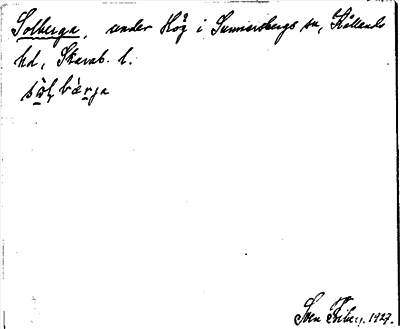 Solberga, under Hög i Sunnersbergs sn, Kållands
hd, Skarab. l.
sòl, bæ̀rja
Sven Fiberg. 1927.